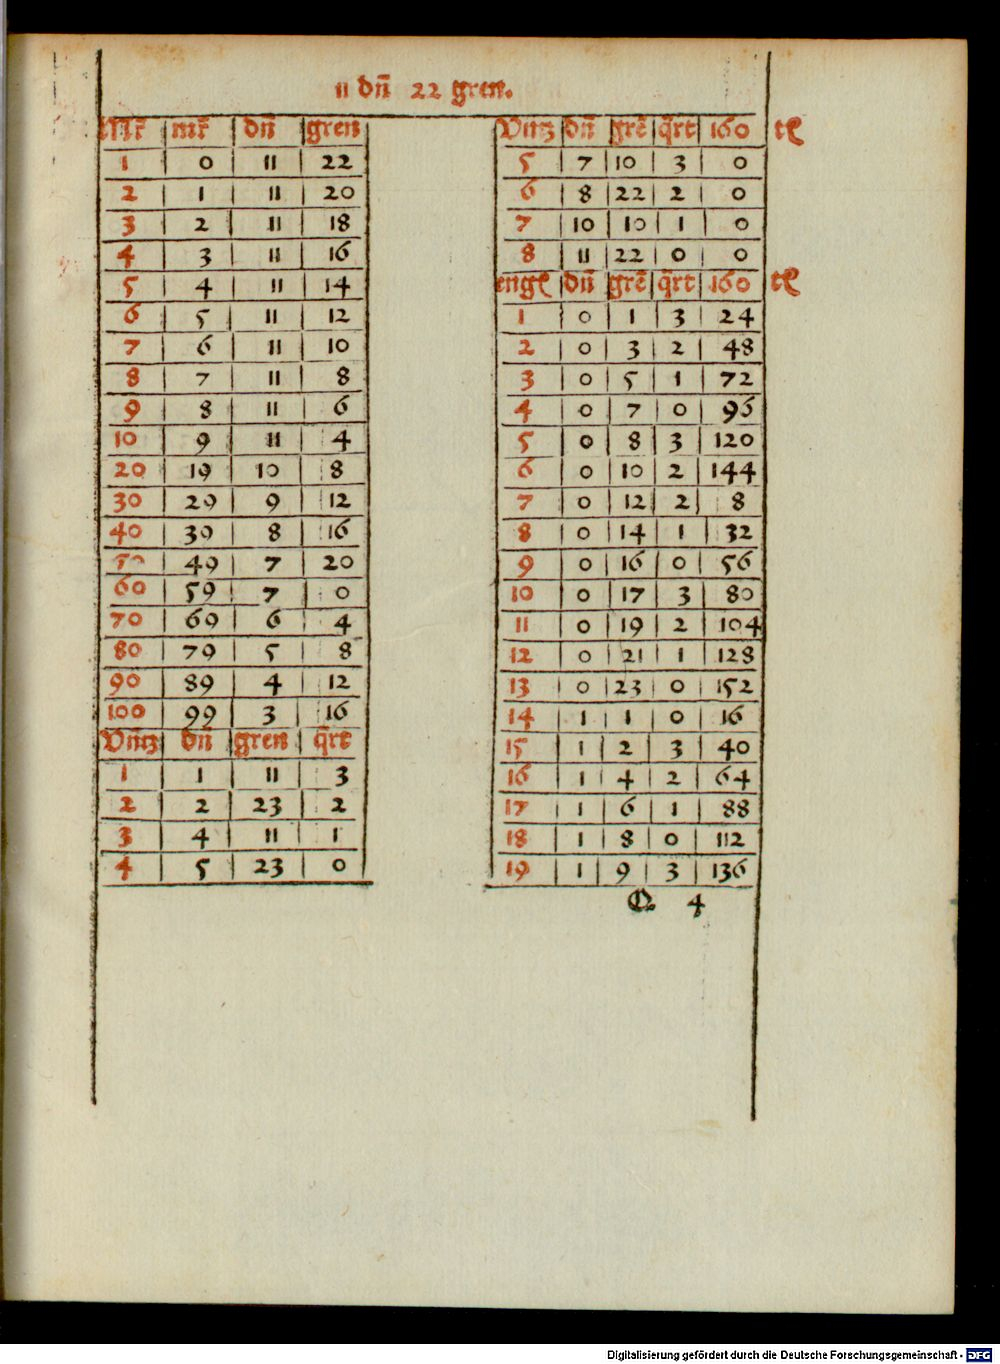 11 dn̄ 22 gren.
Mr̄ mr̄ dn̄ gren
1 0 11 22
2 1 11 20
3 2 11 18
4 3 11 16
5 4 11 14
6 5 11 12
7 6 11 10
8 7 11 8
9 8 11 6
10 9 11 4
20 19 10 8
30 29 9 12
40 39 8 16
50 49 7 20
60 59 7 0
70 69 6 4
80 79 5 8
90 89 4 12
100 99 3 16
Vn̄tz dn̄ gren q̄rt
1 1 11 3
2 2 23 2
3 4 11 1
4 5 23 0
Vntz dn̄ grē q̄rt 160 tl
5 7 10 3 0
6 8 22 2 0
7 10 10 1 0
8 11 22 0 0
engl dn̄ grē q̄rt 160 tl
1 0 1 3 24
2 0 3 2 48
3 0 5 1 72
4 0 7 0 96
5 0 8 3 120
6 0 10 2 144
7 0 12 2 8
8 0 14 1 32
9 0 16 0 56
10 0 17 3 80
11 0 19 2 104
12 0 21 1 128
13 0 23 0 152
14 1 1 0 16
15 1 2 3 40
16 1 4 2 64
17 1 6 1 88
18 1 8 0 112
19 1 9 3 136
Q 4
Digitalisierung gefördert durch die Deutsche Forschungsgemeinschaft - DFG